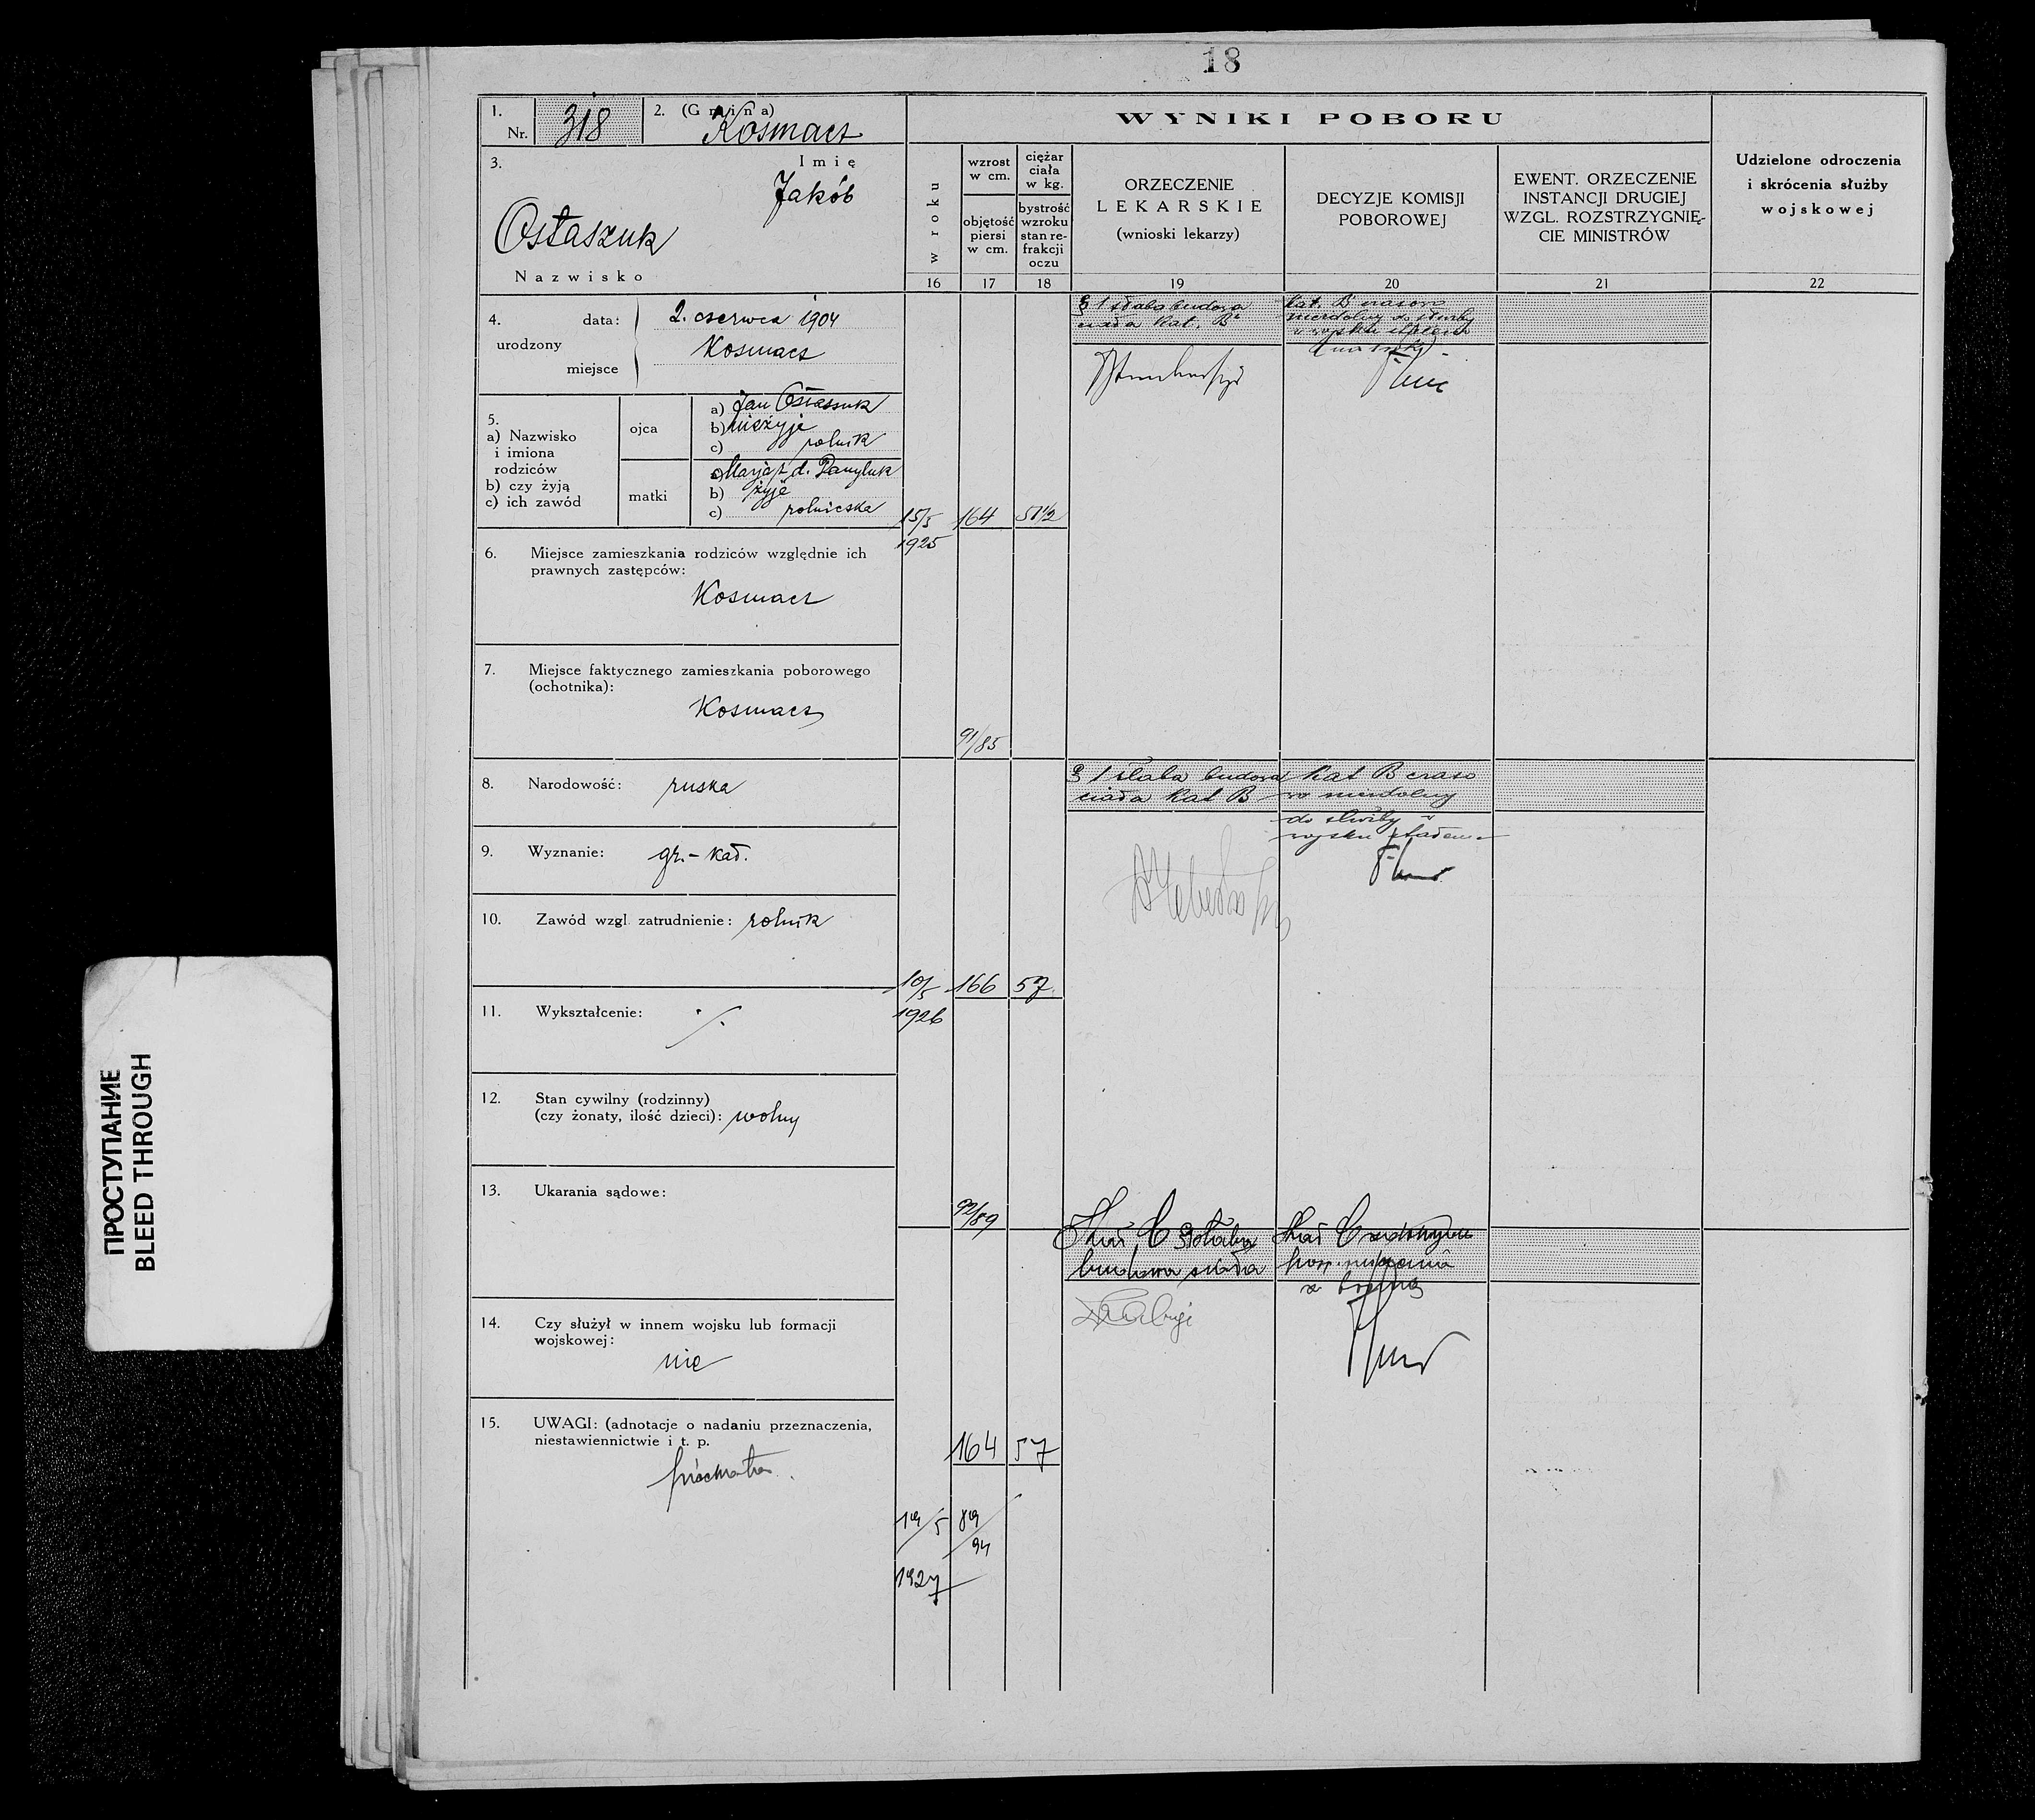 18
1.
Nr. 318
2. (Gmina)
Kosmacz
3.
Imię
Jakób
Ostaszuk
Nazwisko
4. urodzony
data: 2. czerwca 1904
miejsce
Kosmacz
5.
a) Nazwisko
i imiona
rodziców
b) czy żyją
c) ich zawód
ojca
a) Jan Ostaszuk
b) nieżyje
c) rolnik
matki
Marja z d.
b) żyje
c) rolniczka
6. Miejsce zamieszkania rodziców względnie ich
prawnych zastępców:
Kosmacz
7. Miejsce faktycznego zamieszkania poborowego
(ochotnika):
Kosmacz
8. Narodowość: ruska
9. Wyznanie: gr.-kat.
10. Zawód wzgl. zatrudnienie: rolnik
11. Wykształcenie: ./.
12. Stan cywilny (rodzinny)
(czy żonaty, ilość dzieci): wolny
13. Ukarania sądowe:
14. Czy służył w innem wojsku lub formacji
wojskowej:
nie
15. UWAGI: (adnotacje o nadaniu przeznaczenia,
niestawiennictwie i t. p.
WYNIKI POBORU
w roku
wzrost
w cm.
objętość
piersi
w cm.
ciężar
ciała
w kg.
bystrość
wzroku
stan re-
frakcji
oczu
ORZECZENIE
LEKARSKIE
(wnioski lekarzy)
DECYZJE KOMISJI
POBOROWEJ
EWENT. ORZECZENIE
INSTANCJI DRUGIEJ
WZGL. ROZSTRZYGNIĘ-
CIE MINISTRÓW
Udzielone odroczenia
i skrócenia służby
wojskowej
16 17 18 19 20 21 22
15/5
1925
164
51½
91/85
§ 1 słaba budowa
ciała kat. B
kat. B czasowo
niezdolny do służby
10/5
1926
166
57
92/89
§ 1 słaba budowa
ciała kat B
kat B czaso
wo niezdolny
do służby w
wojsku
19/5
1927
164
57
89/94
słaba
budowa ciała
z bronią
ПРОСТУПАНИЕ
BLEED THROUGH